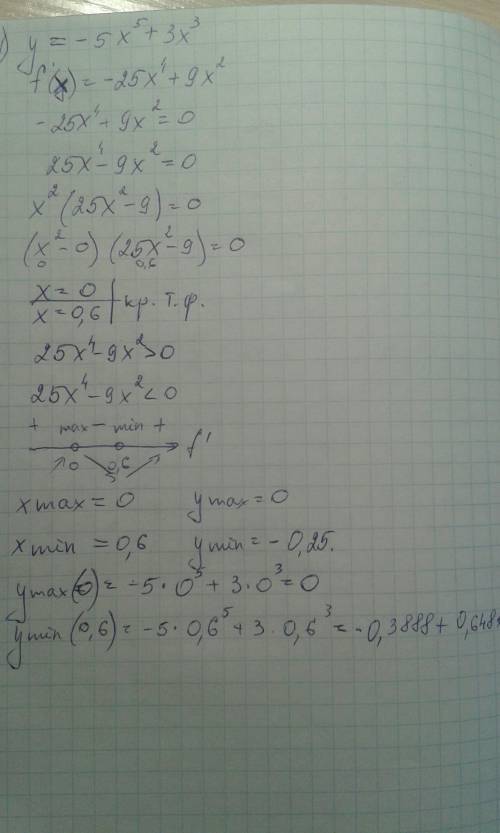 ) y = -5x⁵ + 3x³
f'(x) = -25x⁴ + 9x²
-25x⁴ + 9x² = 0
25x⁴ - 9x² = 0
x² (25x² - 9) = 0
(x² - 0) (25x² - 9) = 0
0 0,6
x = 0
x = 0,6 | кр. т. ф.
25x⁴ - 9x² > 0
25x⁴ - 9x² < 0
+ max - min + f'
0 0,6
xmax = 0 ymax = 0
xmin = 0,6 ymin = -0,25.
ymax(0) = -5 · 0⁵ + 3 · 0³ = 0
ymin(0,6) = -5 · 0,6⁵ + 3 · 0,6³ = -0,3888 + 0,648